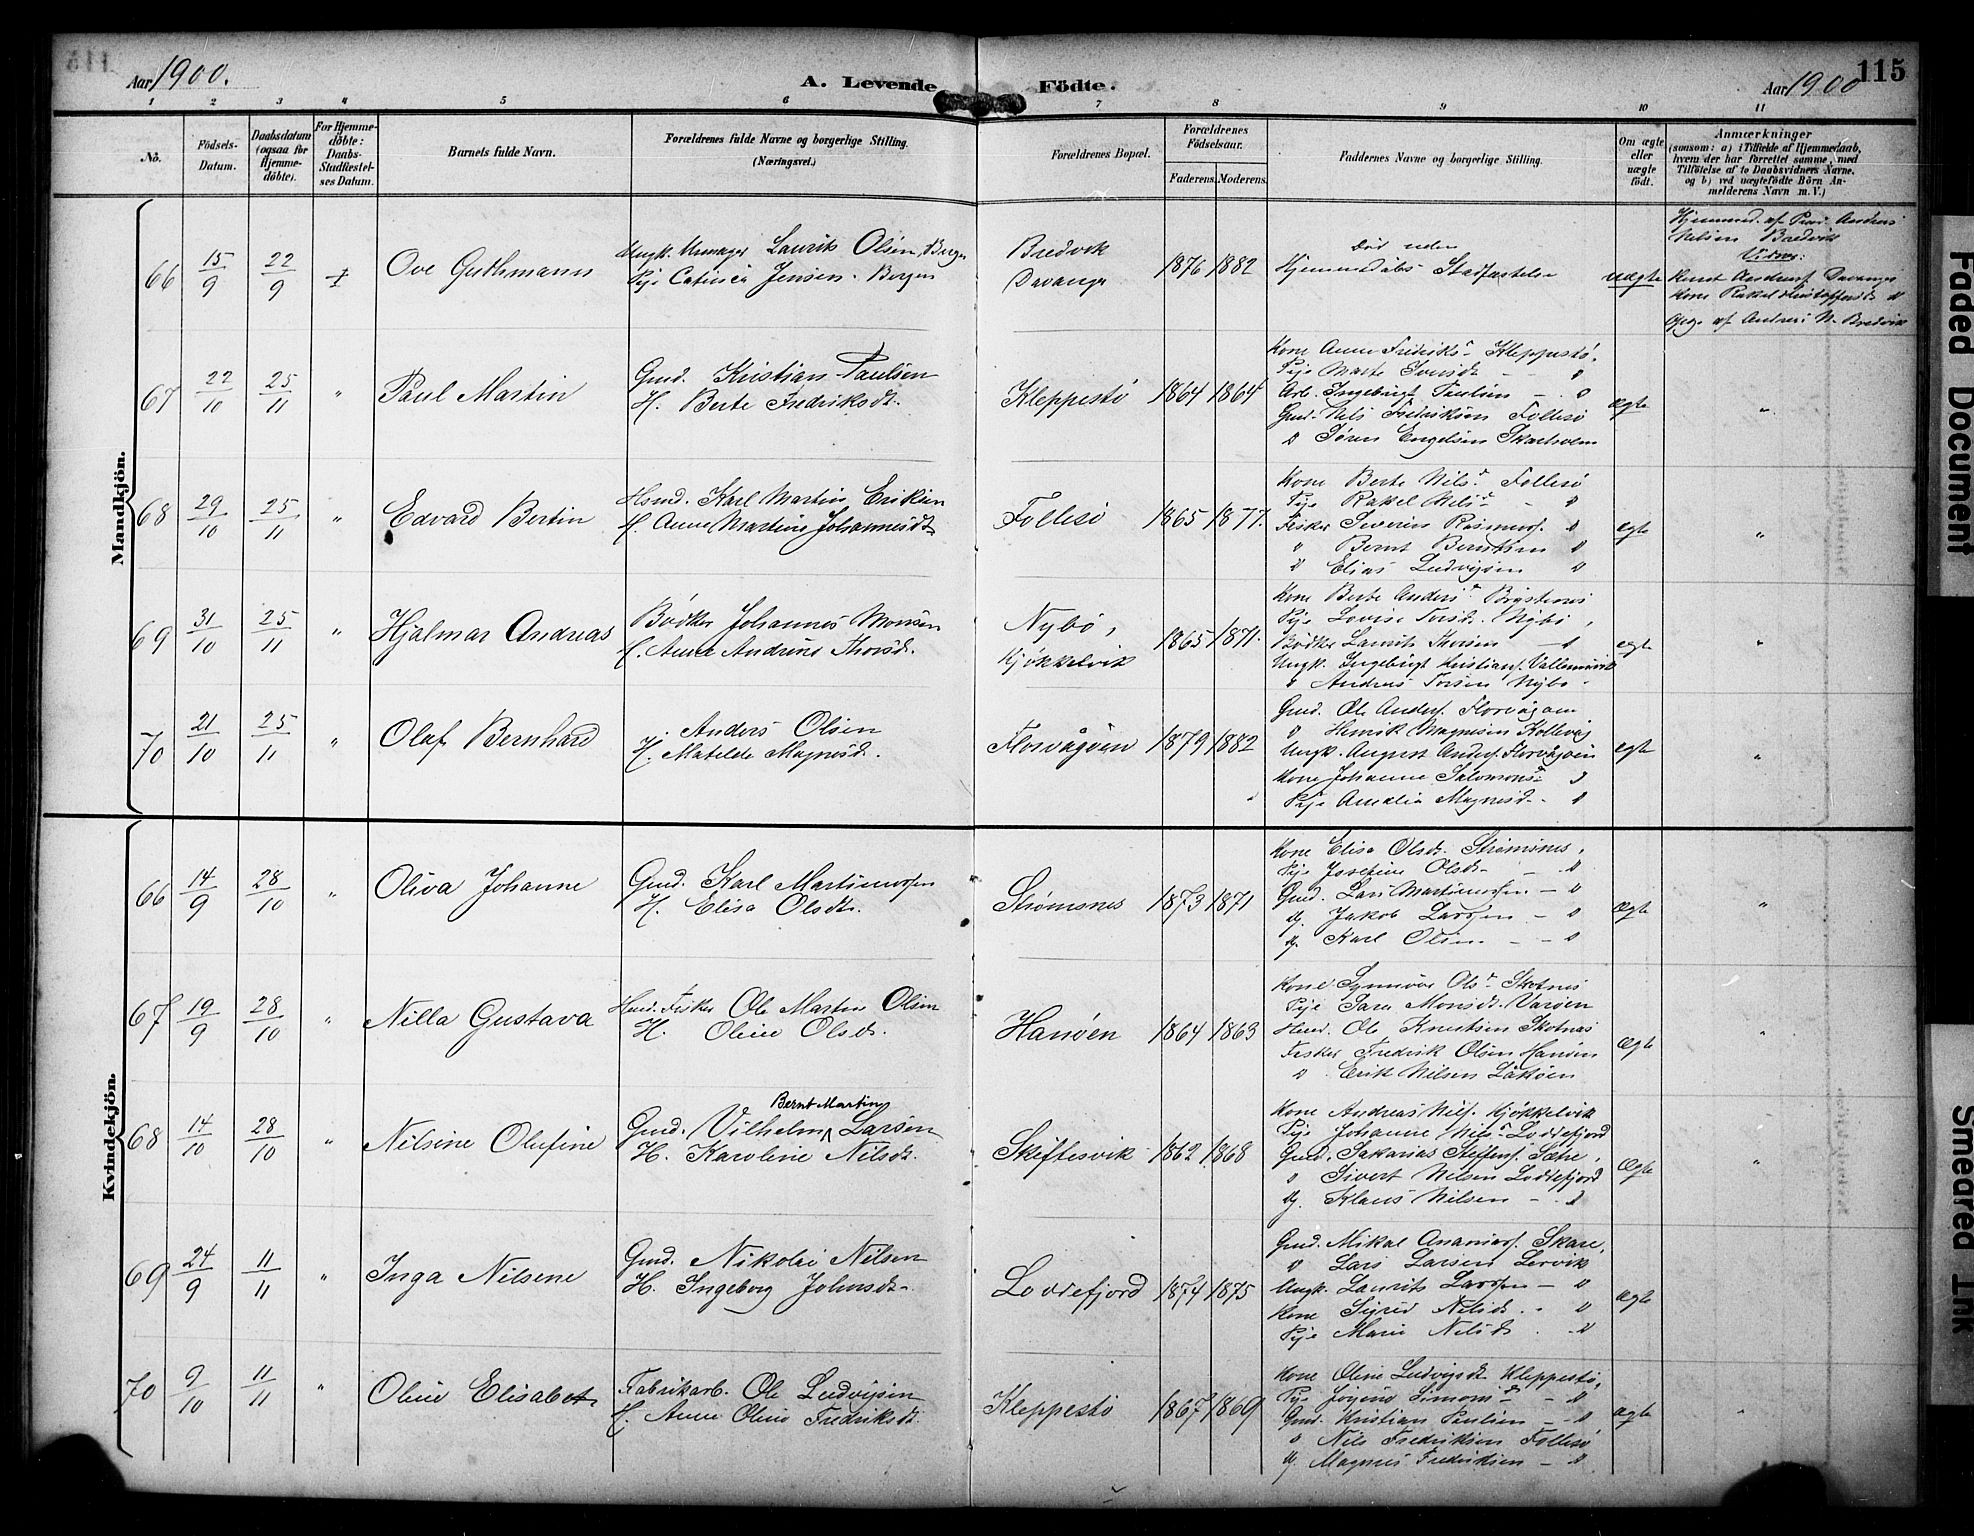 115
Aar 1900.
A. Levende Födte.
Aar 1900
1 2 3 4 5 6 7 8 9 10 11
No.
Födsels-Datum.
Daabsdatum (ogsaa for Hjemme-döbte).
For Hjemme-döbte: Daabs-Stadfæstel-ses Datum.
Barnets fulde Navn.
Forældrenes fulde Navne og borgerlige Stilling. (Næringsvei.)
Forældrenes Bopæl.
Forældrenes Födselsaar.
Faderens. Moderens.
Faddernes Navne og borgerlige Stilling.
Om ægte eller uægte födt.
Anmærkninger
(saasom: a) i Tilfælde af Hjemmedaab, hvem der har forrettet samme, med Tilföielse af to Daabsvidners Navne. og b) ved uægtefödte Börn An-melderens Navn m. V.)
Mandkjön.
66 15/9 22/9 Ove Guthmann
Ungk. Laurits Olsen, Bergen
Pige Jensen. Bergen
Bredvik
Davanger
1876 1882
Död uden
Hjemmedaabs Stadfæstelse
uægte
Hjemmed. af Anders
Nilsen Bredvik
Vidner:
Davanger
Kone Rakel
af Anders N. Bredvik
67 22/10 25/11 " Paul Martin
Gmd. Kristian Paulsen
H. Berte Fredriksdt.
Kleppestö 1864 1864
Kone Anne Fredriksd Kleppestö.
Pige Marte
Arb. Ingebrigt Paulsen
Gmd. Nils Fredriksen Follesö
Sören Engelsen Skarholm
ægte "
68 29/10 25/11 " Edvard Bertin
Hsmd. Karl Martin Eriksen
H. Anne Martine Johannesdt
Follesö 1865 1877.
Kone Berte Nilsd Follesö
Pige Rakel Nilsd
Fisker Severin Rasmuss.
" Bernt Berntsen
" Elias Ludvigsen
ægte "
69 31/10 25/11 " Hjalmar Andreas
Bödker Johannes Monsen
H. Anne Andrine Thorsd.
Nybö,
Kjökkelvik
1865 1871.
Kone Berte Andersd
Pige Lovise Torsd. Nybö
Bödker Laurits Thorsen
Ungk. Ingebrigt Kristians.
" Andreas Torsen Nybö
ægte "
70 21/10 25/11 " Olaf Bernhard
Anders Olsen
H. Matilde Magnusd.
Florvågöen 1879 1882
Gmd. Ole Anders. Florvågöen
" Henrik Magnesen Kollevåg
Ungk. August Anders. Florvågöen
Kone Johanne Salomonsd
Pige Amalia Magnusd.
ægte "
Kvindekjön.
66 14/9 28/10 " Oliva Johanne
Gmd. Karl Martinussen
H. Elisa Olsdt.
Strömsnes 1873 1871
Kone Elisa Olsdt. Strömsnes,
Pige Josefine Olsdt
Gmd. Lars Martinussen
dg. Jakob Larssen
dg. Karl Olsen
Ægte "
67 19/9 28/10 " Nilla Gustava
Hmd. Fisker Ole Martin Olsen
H. Oline Olsdt.
Hanöen 1864 1863
Kone Synnöve Olsd Skotnes
Pige Sara Monsdt. Varöen
Hmd. Ole Knutsen Skotnes
Fisker Fredrik Olsen Hanöen
" Erik Nilsen
Ægte "
68 14/10 28/10 " Nilsine Olufine
Bernt Martin
Gmd. Vilhelm Larsen
H. Karoline Nilsdt.
Skiftesvik 1862 1868
Kone Andreas Nils. Kjökkelvik
Pige Johanne Nilsd Loddefjord
Gmd. Sakarias Steffens. Sætre,
" Sivert Nilsen Loddefjord
dg. Klaus Nilsen
Ægte "
69 24/9 11/11 " Inga Nilsene
Gmd. Nikolai Nilsen
H. Ingeborg Johnsdt.
Loddefjord 1874 1875
Gmd. Mikal Ananias. Skare,
" Lars Larsen Lervik
Ungk. Laurits Larssen
Kone Sigrid Nilsdt.
Pige Marie Nilsdt.
Ægte "
70 9/10 11/11 " Oline Elisabet
Fabrikarb. Ole Ludvigsen
H. Anne Oline Fredriksdt.
Kleppestö 1867 1869
Kone Oline Ludvigsdt Kleppestö,
Pige Simonsd
Gmd. Kristian Paulsen
" Nils Fredriksen Follesö
dg. Magnus Fredriksen
Ægte "
Faded Document
Smeared Ink